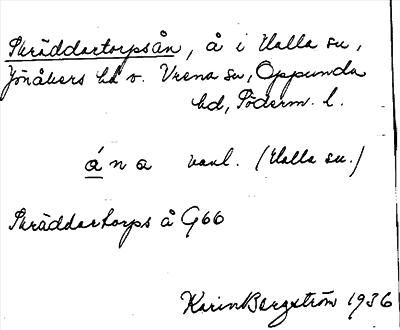 Skräddartorpsån, å i Halla sn,
Jönåkers hd o. Vrena sn, Oppunda
hd, Söderm. l.
ána vanl. (Halla sn.)
Skräddartorps å G66
Karin Bergström 1936